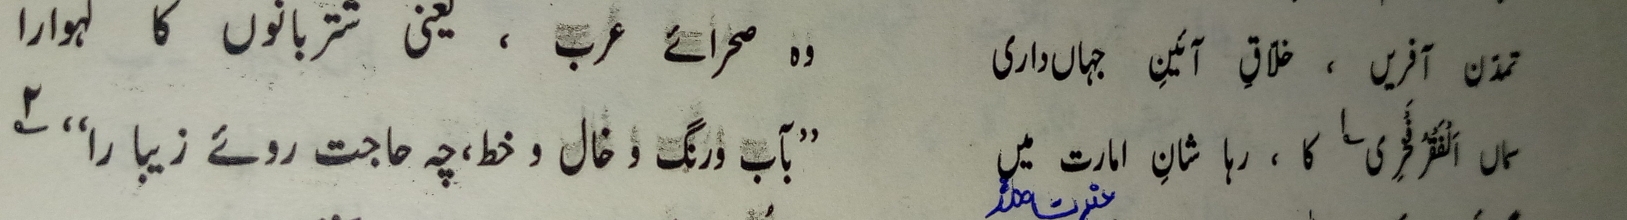 تمدّن آفریں ، خلاقِ آئینِ جہاں‌داری
وہ صحرائے عرب ، یعنی شتربانوں کا گہوارا
سماں اَلْفَقْرُ فَخْرِی۱ کا ، رہا شانِ امارت میں
”بآب و رنگ و خال و خط، چہ حاجت روئے زیبا را“۲